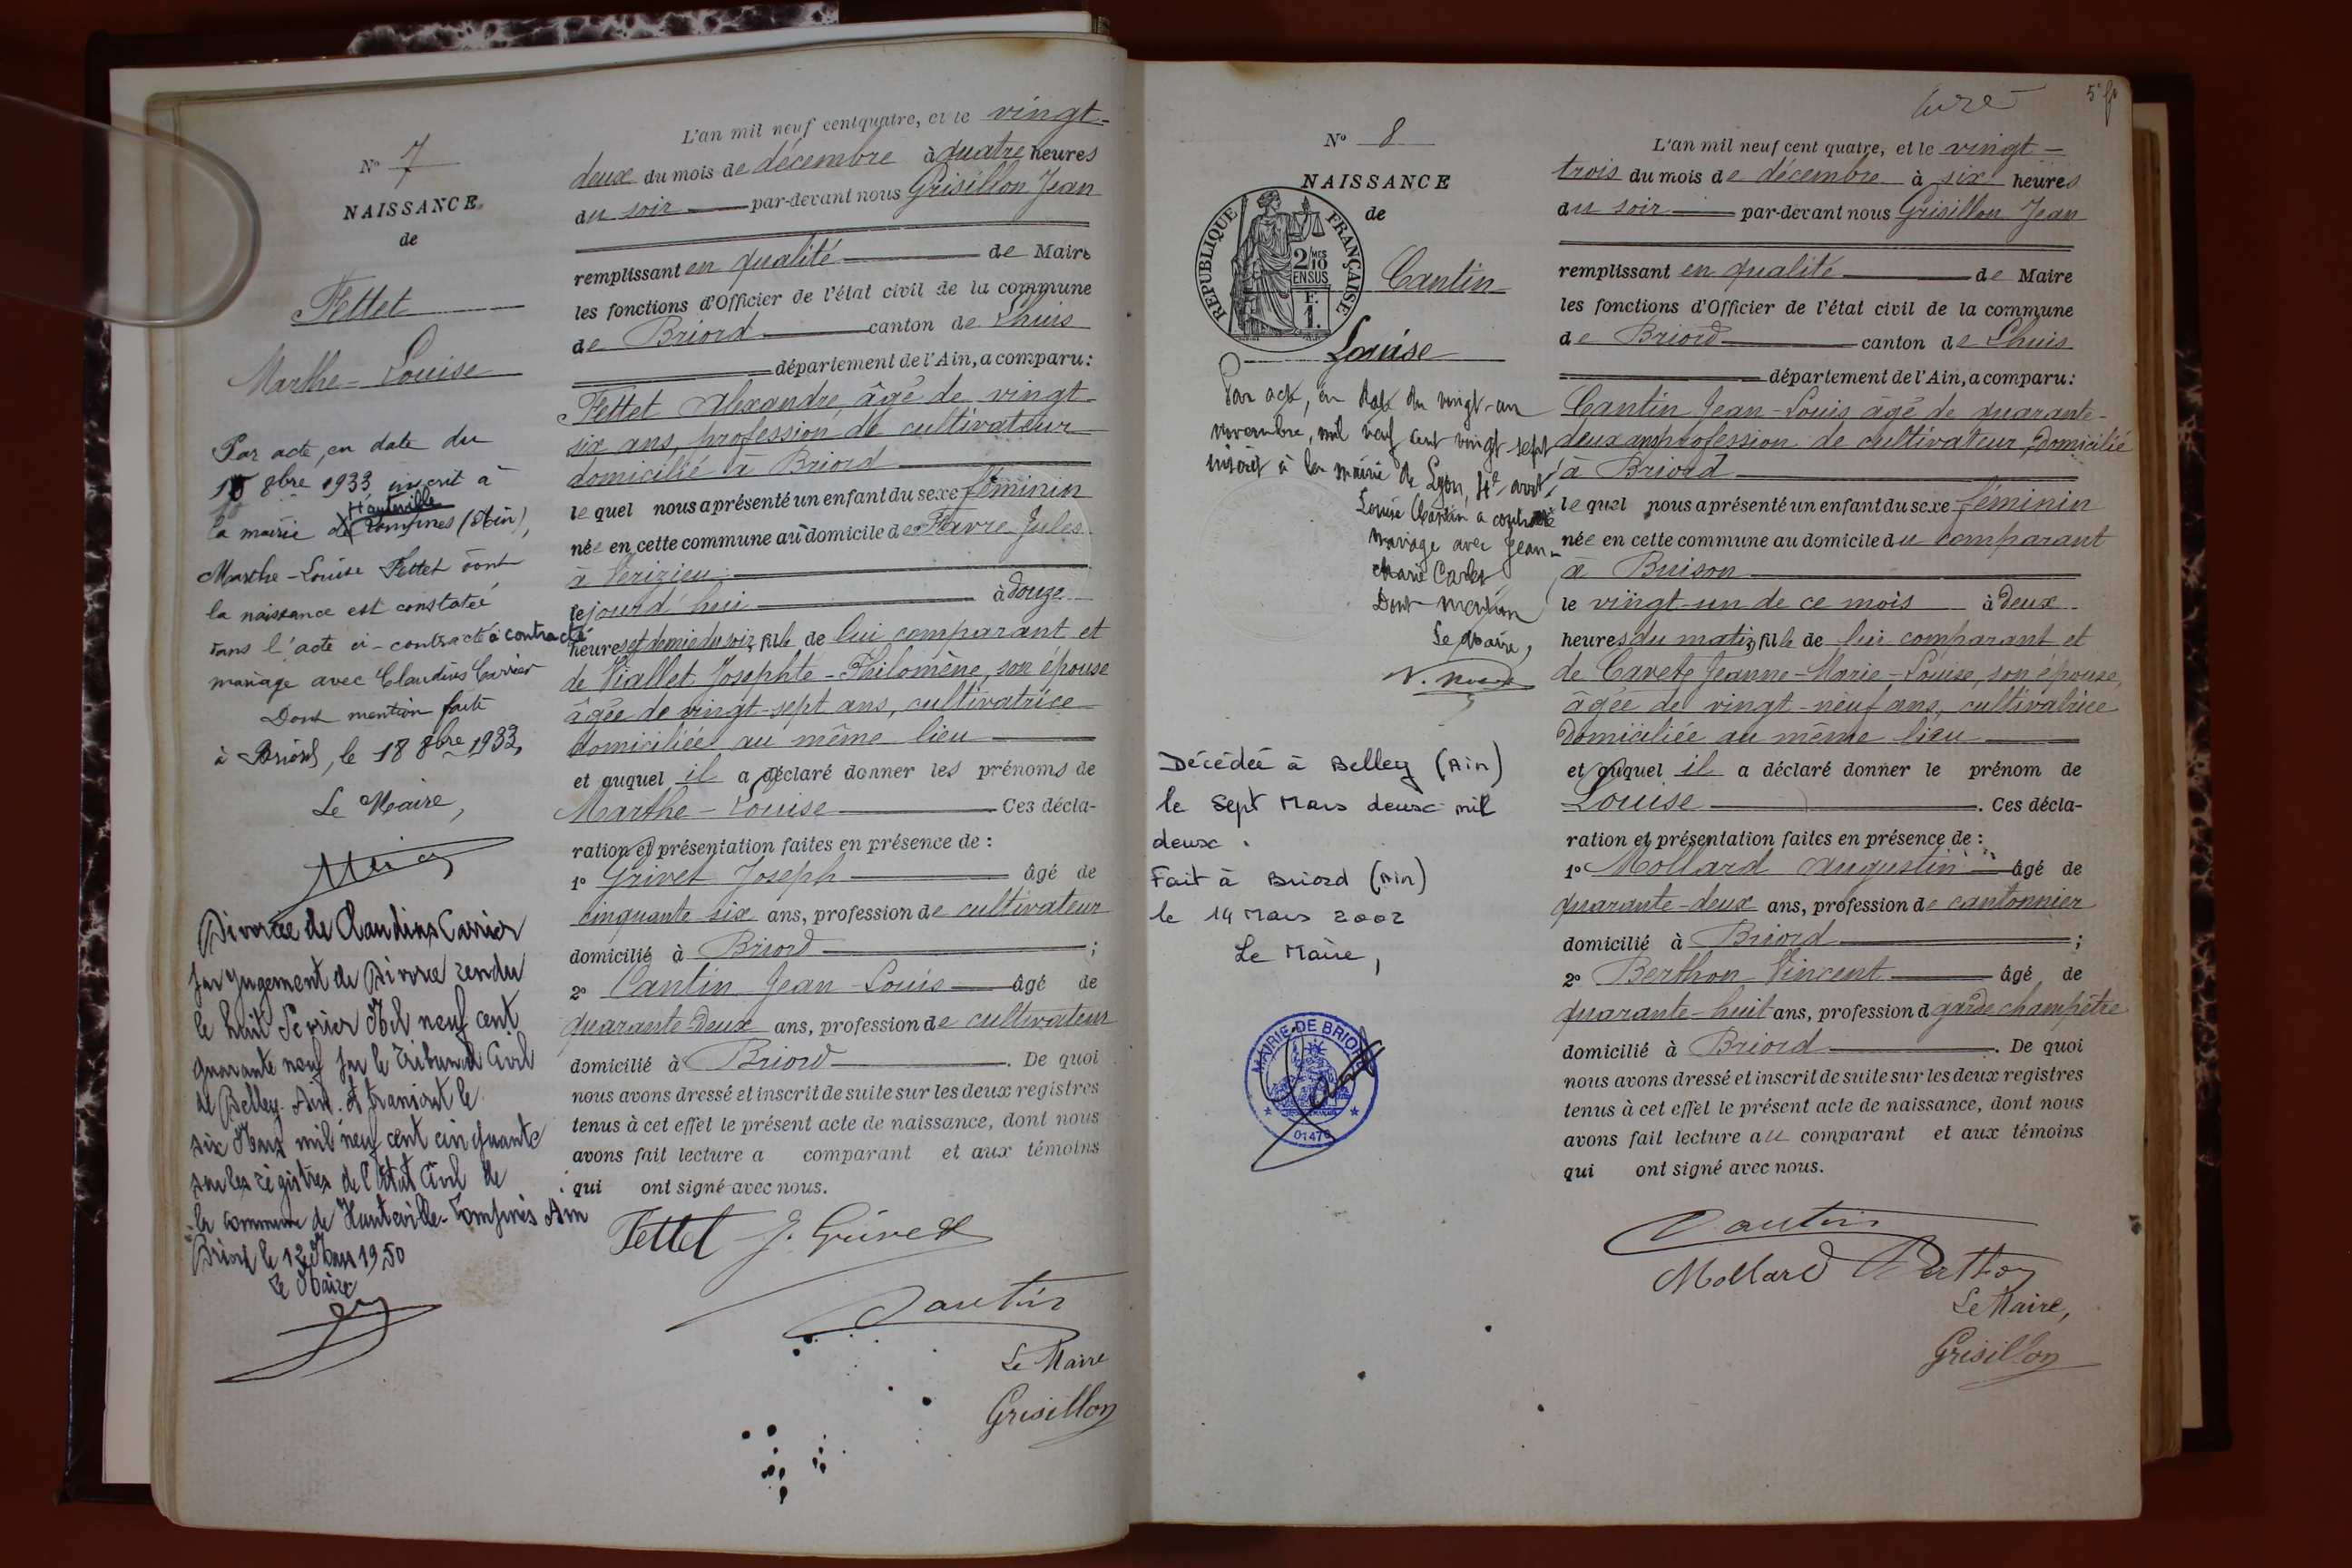 N° 7
NAISSANCE
de
Fettet
Marthe-Louise
Par acte, en date du
8bre 1933 inscrit à
Hauteville
la mairie de Lompnes (Ain),
Marthe-Louise Fettet dont
la naissance est constatée
dans l'acte ci-contracté à contracté
mariage avec Claudius Carrier
Dont mention faite
à Briord, le 18 8bre 1933,
Le Maire,
Divorcée de Claudius Carrier
par jugement de Divorce rendu
le huit Février Mil neuf cent
quarante neuf par le Tribunal Civil
de Belley. Ain. et transcrit le
six Mars mil neuf cent cinquante
sur les registres de l'Etat Civil de
la commune de Hauteville-Lompnes Ain
Briord le 12 Mars 1950
Le Maire
L'an mil neuf cent quatre, et le vingt-
deux du mois de décembre à quatre heures
du soir par-devant nous Grisillon Jean
remplissant en qualité de Maire
les fonctions d'Officier de l'état civil de la commune
de Briord canton de Lhuis
département de l'Ain, a comparu:
Fettet Alexandre, âgé de vingt-
six ans, profession de cultivateur
domicilié à Briord
lequel nous a présenté un enfant du sexe féminin
née en cette commune au domicile de Favre Jules
à Vérizieu
le jourd'hui à douze
heures et demie du soir, fille de lui comparant et
de Viallet Josephte-Philomène, son épouse
âgée de vingt-sept ans, cultivatrice
domiciliée au même lieu
et auquel il a déclaré donner les prénoms de
Marthe-Louise Ces décla-
ration et présentation faites en présence de :
1° Grivet Joseph âgé de
cinquante six ans, profession de cultivateur
domicilié à Briord ;
2° Cantin Jean-Louis âgé de
quarante-deux ans, profession de cultivateur
domicilié à Briord . De quoi
nous avons dressé et inscrit de suite sur les deux registres
tenus à cet effet le présent acte de naissance, dont nous
avons fait lecture a comparant et aux témoins
qui ont signé avec nous.
Fettet J. Grivet
Cantin
Le Maire
Grisillon
5e fo
N° 8
NAISSANCE
de
REPUBLIQUE FRANÇAISE
2/10MES
EN SUS
F.
1.
Cantin
Louise
Par acte, en date du vingt-un
novembre, mil neuf cent vingt sept
inscrit à la mairie de Lyon, 4e arrt,
Louise Cantin a contracté
mariage avec Jean-
Marie
Dont mention
Le Maire,
Décédée à Belley (Ain)
le Sept Mars deux mil
deux.
Fait à Briord (Ain)
le 14 Mars 2002
Le Maire,
MAIRIE DE BRIORD
01470
L'an mil neuf cent quatre, et le vingt-
trois du mois de décembre à six heures
du soir par-devant nous Grisillon Jean
remplissant en qualité de Maire
les fonctions d'Officier de l'état civil de la commune
de Briord canton de Lhuis
département de l'Ain, a comparu:
Cantin Jean-Louis âgé de quarante-
deux ans profession de cultivateur, domicilié
à Briord
lequel nous a présenté un enfant du sexe féminin
née en cette commune au domicile du comparant
à Buison
le vingt-un de ce mois à deux
heures du matin, fille de lui comparant et
de Cavet Jeanne-Marie-Louise, son épouse,
âgée de vingt-neuf ans, cultivatrice
domiciliée au même lieu
et auquel il a déclaré donner le prénom de
Louise . Ces décla-
ration et présentation faites en présence de :
1° Mollard Augustin âgé de
quarante-deux ans, profession de cantonnier
domicilié à Briord ;
2° Berthon Vincent âgé de
quarante-huit ans, profession d garde champêtre
domicilié à Briord . De quoi
nous avons dressé et inscrit de suite sur les deux registres
tenus à cet effet le présent acte de naissance, dont nous
avons fait lecture au comparant et aux témoins
qui ont signé avec nous.
Cantin
Mollard Berthon
Le Maire,
Grisillon